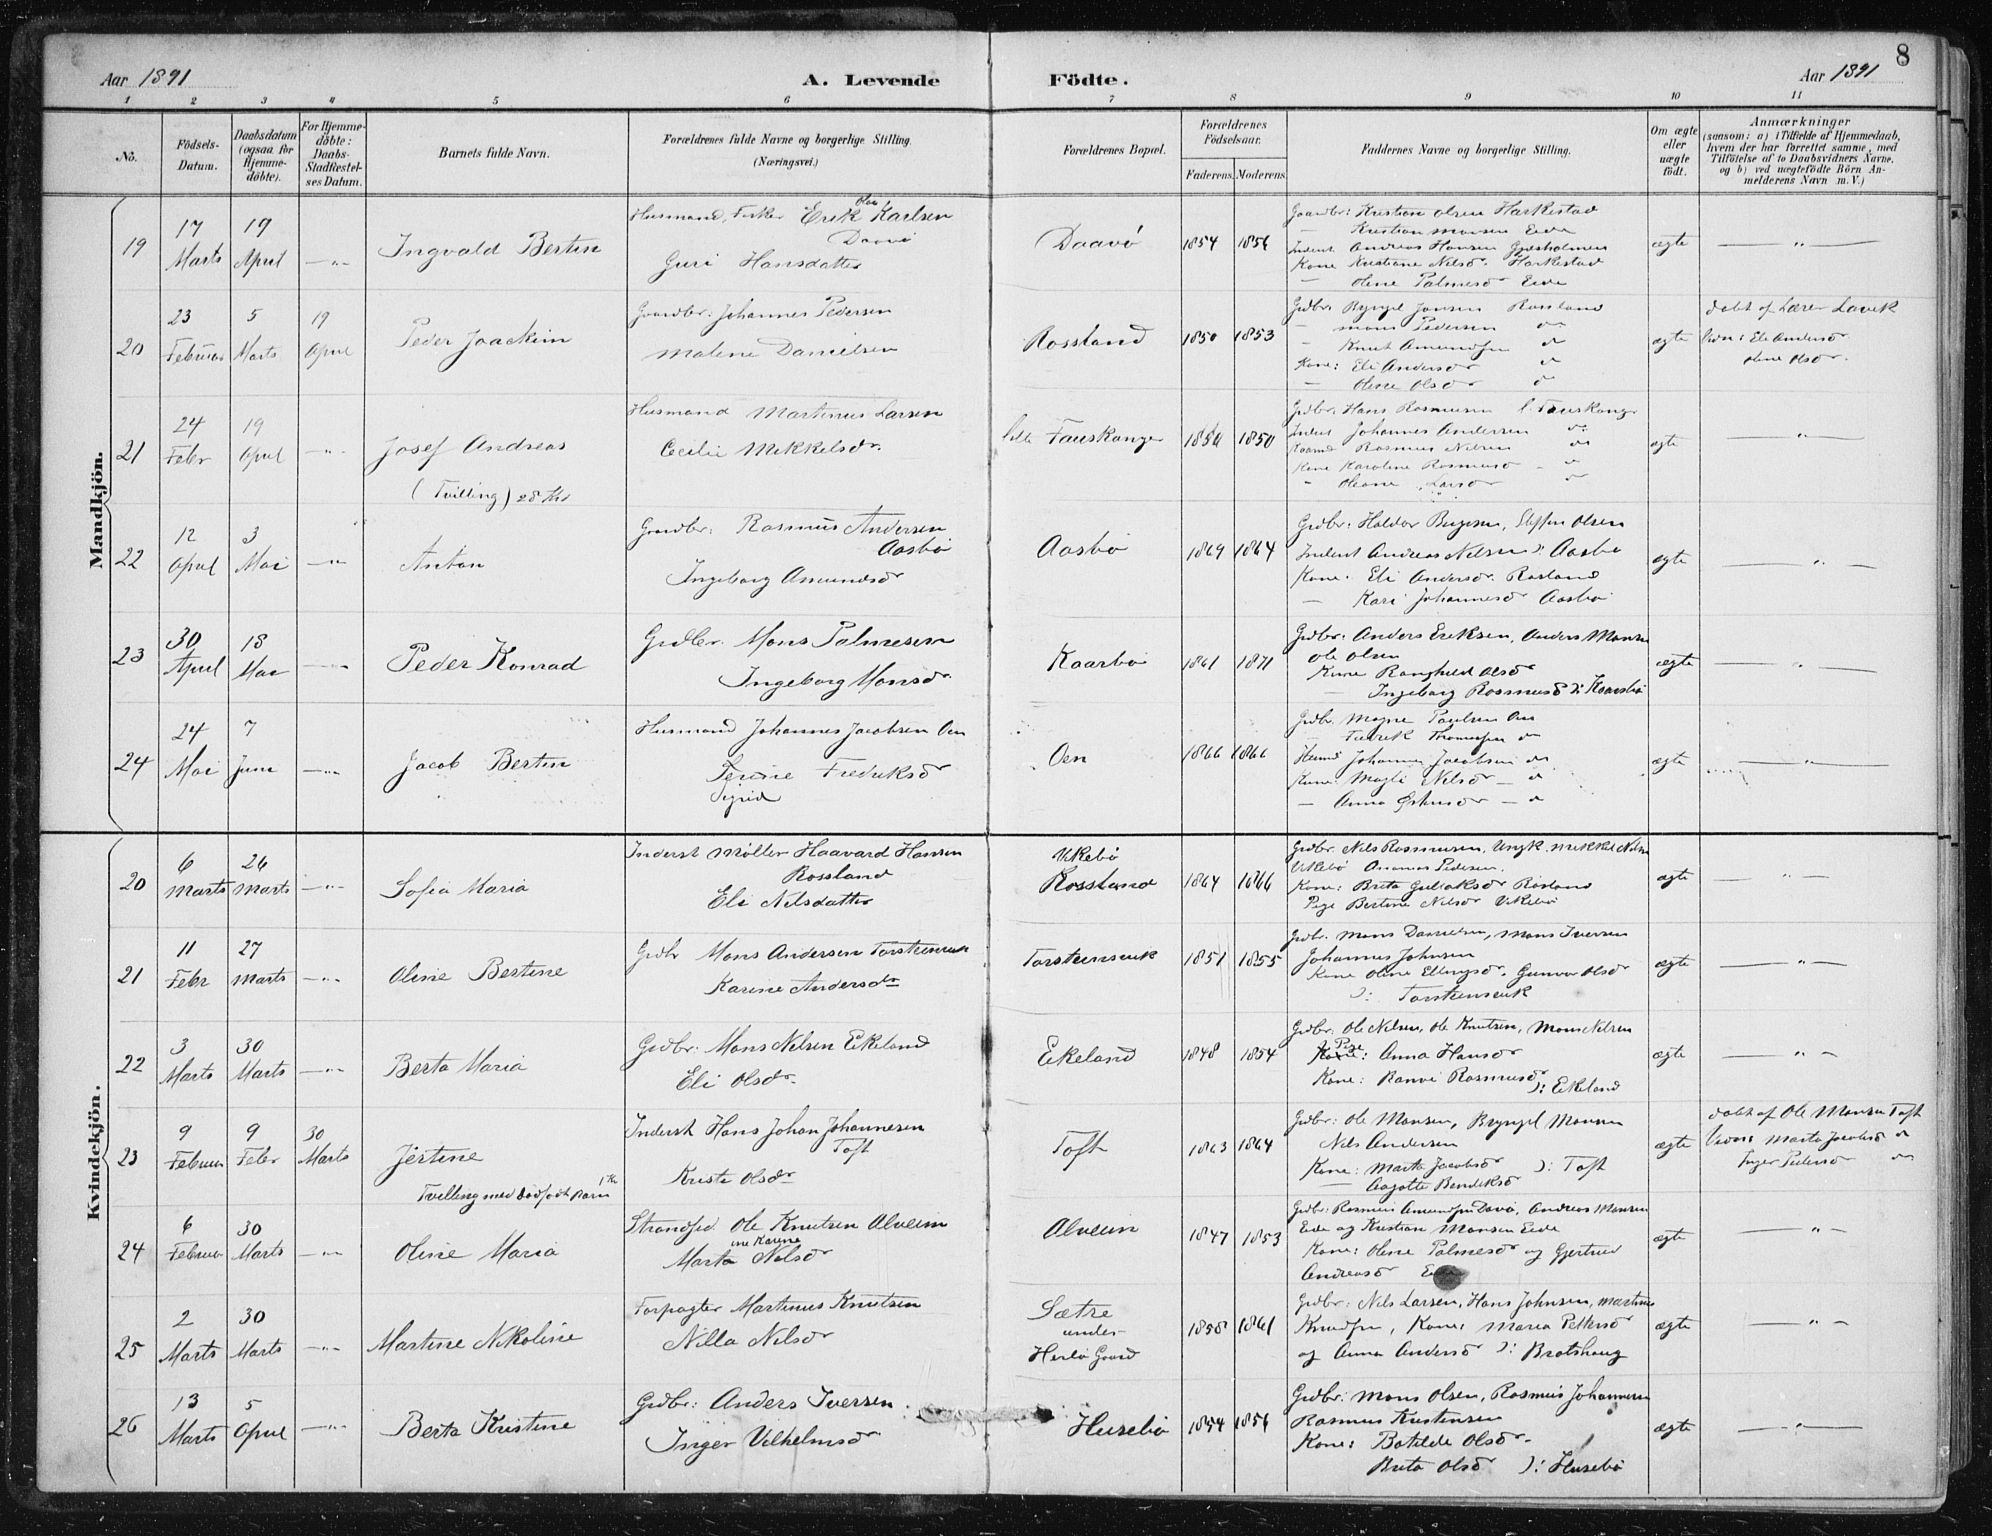 8
Aar 1891 A. Levende Födte. Aar 1891
1 2 3 4 5 6 7 8 9 10 11
No. Födsels-Datum. Daabsdatum (ogsaa for Hjemme-döbte). For Hjemme-döbte: Daabs-Stadfæstel-ses Datum. Barnets fulde Navn. Forældrenes fulde Navne og borgerlige Stilling. (Næringsvei.) Forældrenes Bopæl. Forældrenes Födselsaar. Faderens. Moderens. Faddernes Navne og borgerlige Stilling. Om ægte eller uægte födt. Anmærkninger (saasom: a) i Tilfælde af Hjemmedaab, hvem der har forrettet samme, med Tilföielse af to Daabsvidners Navne, og b) ved uægtefödte Börn An-melderens Navn m. V.)
Mandkjön.
19 17 Marts 19 April —"— Ingvald Bertin
Husmand, Fisker Erik Olai Karlsen
Daavö
Guri Hansdatter
Daavö 1854 1856
Gaardbr: Kristian Olsen Harkestad
— Kristian Monsen Eide
Inderst Andreas Hansen
Kone Kristiane Nilsd. Harkestad
— Olene Palmesdr Eide
ægte — " —
20 23 Februar 5 Marts 19 April Peder Joachim
Gaardbr: Johannes Pedersen
Malene Danielsen
Rossland 1850 1853
Grdbr: Byngel Jonsen Rossland
— Mons Pedersen do
— Knut Amundsen do
Kone: Eli Andersdr do
— Olene Olsdr do
ægte
döbt af Lærer Lavik
Vidn: Eli Andersdr
Olene Olsdr.
21 24 Febr 19 April —"— Josef Andreas
(Tvilling)
Husmand Martinus Larsen
Cecilie Mikkelsdr.
lille Fauskanger 1850
Grdbr: Hans Rasmusen l. Fauskanger
Inderst Johannes Andersen do
Rasmus Nilsen do
Kone Karoline Rasmusdr — do
" Oleane Larsdr do
ægte — " —
22 12 April 3 Mai —"— Anton
Gaardbr: Rasmus Andersen
Aasbö
Ingeborg Amundsdr
Aasbö 1869 1864
Grdbr: Haldor Steffen Olsen
Inderst Andreas Nilsen ): Aasbö
Kone: Eli Andersdr. Rosland
— Kari Johannesdr Aasbö
ægte — " —
23 30 April 18 Mai —"— Peder Konrad
Grdbr. Mons Palmesen
Ingeborg Monsdr.
Kaarbö 1861 1871
Grdbr: Anders Eriksen, Anders Monsen
Ole Olsen
Kone Ranghild Olsdr
— Ingeborg Rasmusd ): Kaarbö
ægte — " —
24 24 Mai 7 Juni —"— Jacob Bertin
Husmand Johannes Jacobsen Oen
Serine Fredriksdr
Sigrid
Oen 1866 1866
Grdbr. Mogne Paulsen Oen
— Fredrik Thomassen do
Husmd Johannes Jacobsen do
Kone: Magli Nilsdr — do
— Anna — do
ægte — " —
Kvindekjön.
20 6 Marts 26 Marts —"— Sofia Maria
Inderst Møller Haavard Hansen
Rossland
Eli Nilsdatter
Vikebö
Rossland 1864 1866
Grdbr. Nils Rasmusen, Ungk. Mikkel Nilsen
Vikebö Pedersen.
Kone: Brita Gullaksdr Rosland
Pige Bertine Nilsdr Vikebö
ægte — " —
21 11 Febr 27 Marts —"— Oline Bertine
Grdbr Mons Andersen Torsteinsvik
Karine Andersdr
Torsteinsvik 1851 1855
Grdbr. Mons Danielsen, Mons Iversen
Johannes Johnsen
Kone Oline Ellingsdr. Gunvor Olsdr
): Torsteinsvik
ægte — " —
22 3 Marts 30 Marts —"— Berta Maria
Grdbr: Mons Nilsen Eikeland
Eli Olsdr.
Eikeland 1848 1854
Grdbr: Ole Nilsen, Ole Knutsen, Mons Nilsen
Pige
Kone: Anna Hansdr
Kone: Ranvei Rasmusdr ): Eikeland
ægte — " —
23 9 Februar 9 Febr 30 Marts Jertine
Tvilling med dödfödt Barn
Inderst Hans Johan Johannesen
Toft
Kristi Olsdr
Toft 1863 1864
Grdbr: Ole Monsen, Bryngel Monsen
Nils Andersen
Kone: Marta Jacobsdr ): Toft
— Aagotte Bendiksdr
ægte
döbt af Ole Monsen Toft
Vidn: Marta Jacobsdr do
Inger Pedersdr do
24 6 Februar 30 Marts —"— Oline Maria
Strandsid Ole Knutsen Alveim
Karine
Marta Nilsdr
Alveim 1847 1853
Grdbr: Rasmus Amundsen Davö, Andreas Monsen
Eide og Kristian Monsen Eide
Kone: Olene Palmesdr og Gjertrud
Andreasdr Eide
ægte — " —
25 2 Marts 30 Marts —"— Martine Nikoline
Forpagter Martinus Knutsen
Nilla Nilsdr
Sætre
under
Herlö Gaard
1858 1861
Grdbr: Nils Larsen, Hans Johnsen, Martinus
Knudsen, Kone: Maria Pettersdr
og Anna Andersdr ): Brotshaug
ægte — " —
26 13 Marts 5 April —"— Berta Kristine
Grdbr: Anders Iversen
Inger Vilhelmsdr
Husebö 1854 1856
Grdbr: Mons Olsen, Rasmus Johannesen
Rasmus Kristensen
Kone: Botilde Olsdr.
Brita Olsd ): Husebö
ægte — " —